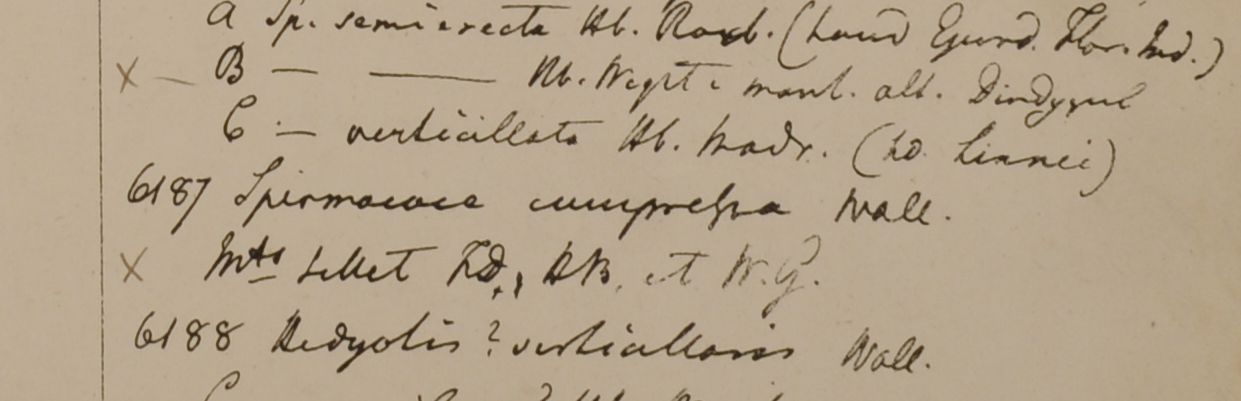 A Sp. semierecta Hb. Roxb. (haud Ejusd. Flor. Ind.)
X — B — —— Hb. Wight e mont. alt. Dindygul
C — verticillata Hb. Madr. (hd. Linnei)
6187 Spermacoce compressa Wall.
X Mts Sillet FD, HB, et W.G.
6188 Hedyotis ? verticillaris Wall.